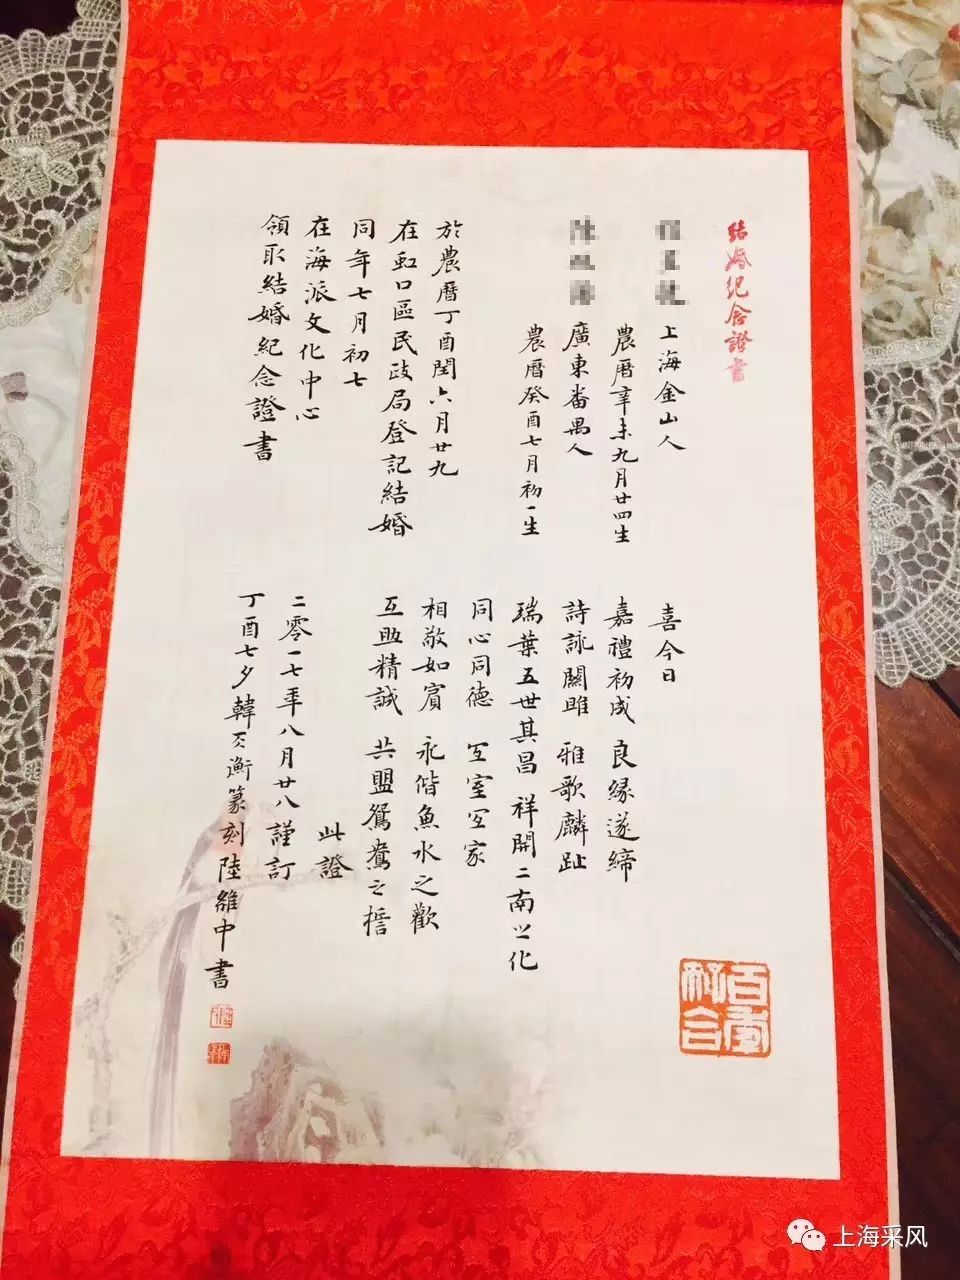 結婚紀念證書
上海金山人
農曆辛未九月廿四生
廣東番禺人
農曆癸酉七月初一生
於農曆丁酉閏六月廿九
在虹口區民政局登記結婚
同年七月初七
在海派文化中心
領取結婚紀念證書
喜今日
嘉禮初成 良緣遂締
詩詠關雎 雅歌麟趾
瑞葉五世其昌 祥開二南之化
同心同德 宜室宜家
相敬如賓 永偕魚水之歡
互助精誠 共盟鴛鴦之誓
此證
二零一七年八月廿八謹訂
丁酉七夕韓天衡篆刻陸維中書
百年好合
上海采风